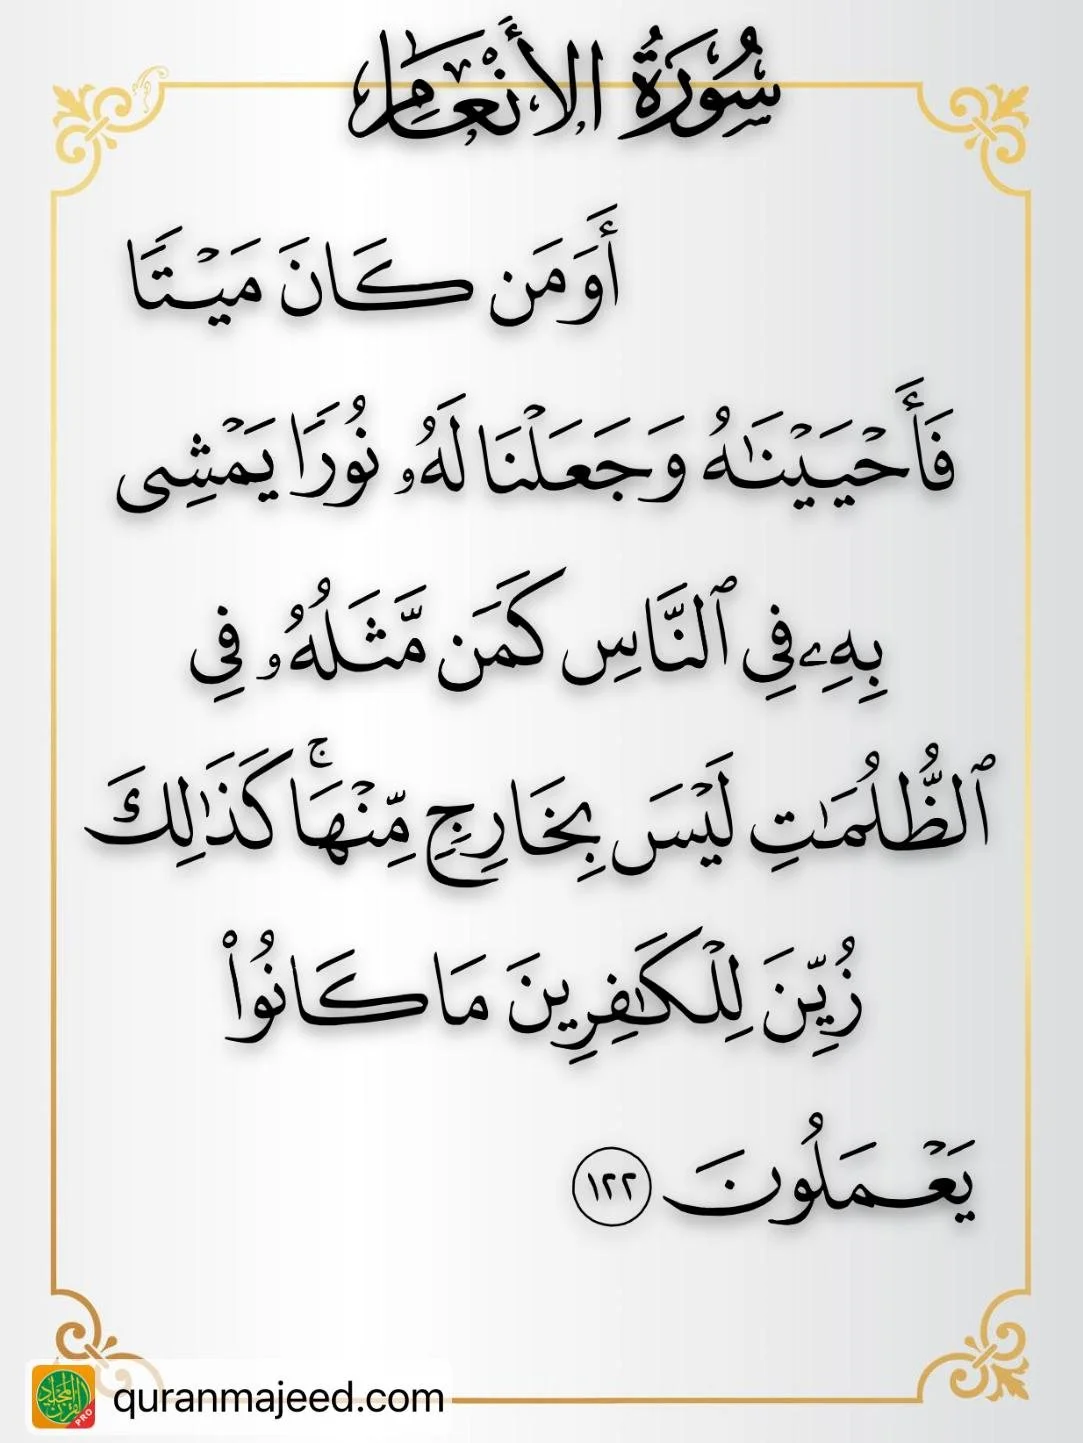 سُورَةُ الأَنْعَامِ
أَوَمَن كَانَ مَيْتًا
فَأَحْيَيْنَٰهُ وَجَعَلْنَا لَهُۥ نُورًا يَمْشِى
بِهِۦ فِى ٱلنَّاسِ كَمَن مَّثَلُهُۥ فِى
ٱلظُّلُمَٰتِ لَيْسَ بِخَارِجٍ مِّنْهَا ۚ كَذَٰلِكَ
زُيِّنَ لِلْكَٰفِرِينَ مَا كَانُوا۟
يَعْمَلُونَ ١٢٢
quranmajeed.com
PRO